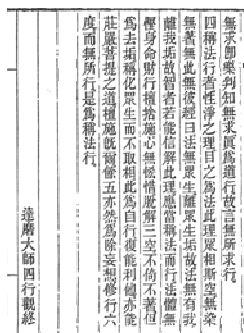 無求即樂判知無求眞爲道行故言無所求行
四稱法行者性淨之理目之爲法此理眾相斯空無染
無著無此無彼經曰法無眾生離眾生垢故法無有我
離我垢故智者若能信解此理應當稱法而行法體無
慳身命財行檀捨施心無悋惜脫解三空不倚不著但
爲去垢稱化眾生而不取相此爲自行復能利他亦能
莊嚴菩提之道檀施既爾餘五亦然爲除妄想修行六
度而無所行是爲稱法行。
達磨大師四行觀終